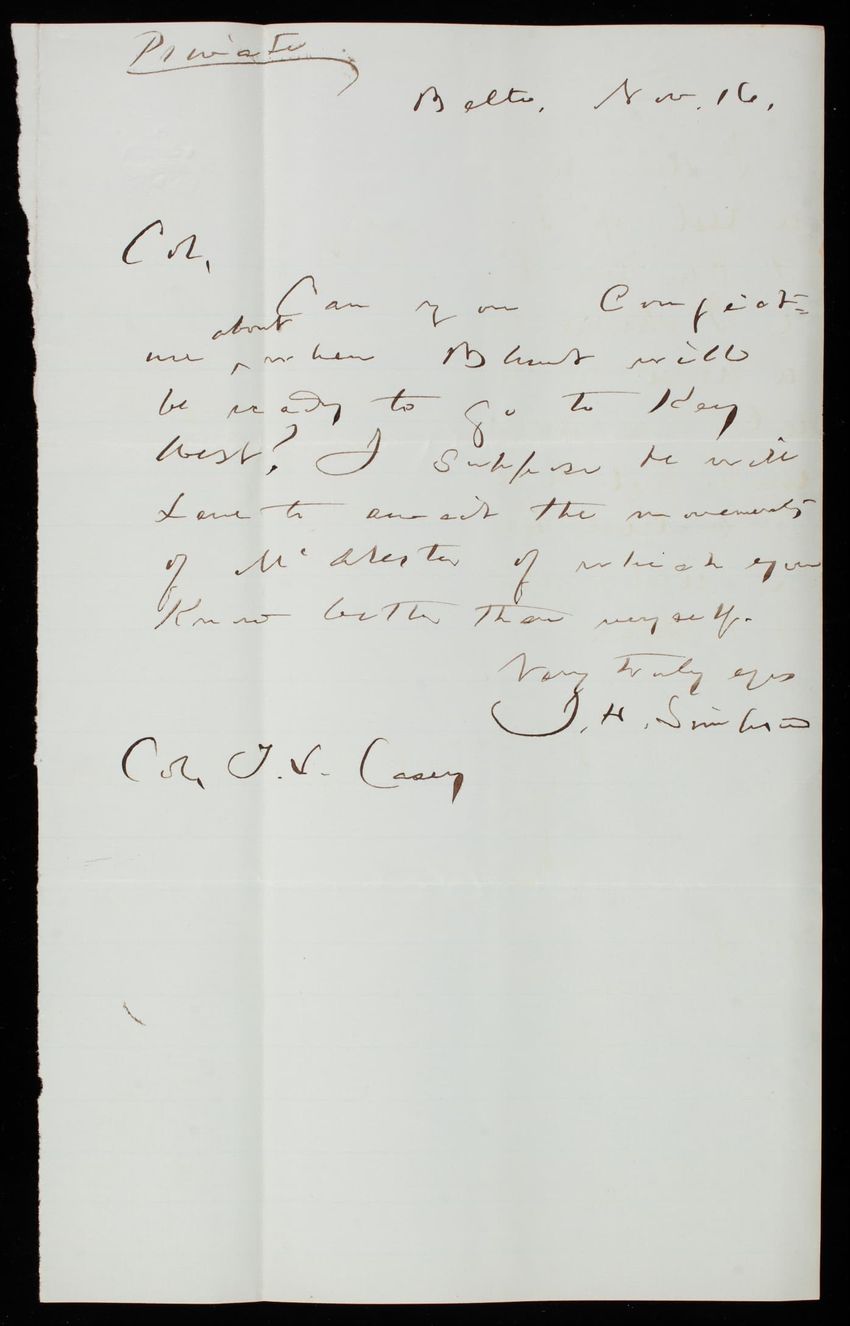 Private
Balto, Nov. 16,
Col,
Can you Conject-
ure about when Blunt will
be ready to go to Key
West? I suppose he will
have to await the movements
of McAlester of which you
Know better than myself.
Very truly yrs
J. H. Simpson
Col, T. L. Casey